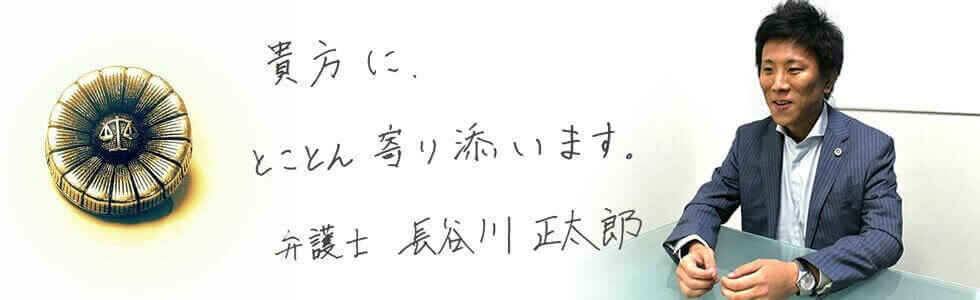 貴方に、
とことん寄り添います。
弁護士 長谷川 正太郎